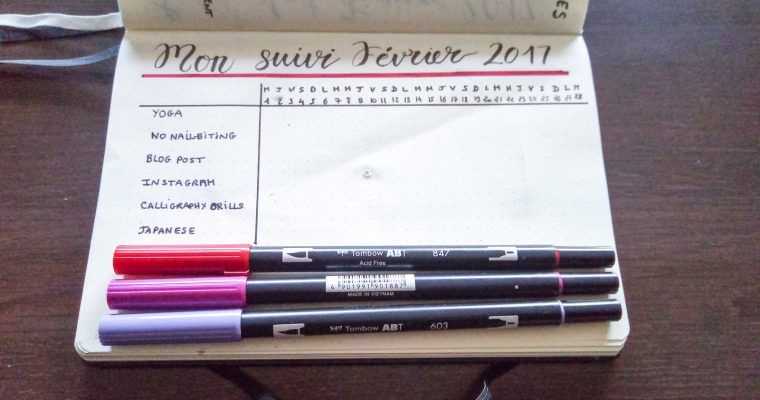 ENT
ES
Mon suivi Février 2017
M J V S D L M M J V S D L M M J V S D L M M J V S D L M
1 2 3 4 5 6 7 8 9 10 11 12 13 14 15 16 17 18 19 20 21 22 23 24 25 26 27 28
YOGA
NO NAILBITING
BLOG POST
INSTAGRAM
CALLIGRAPHY DRILLS
JAPANESE
Tombow ABT 847
Acid Free
4 901991 901887
MADE IN VIETNAM
Tombow ABT 603